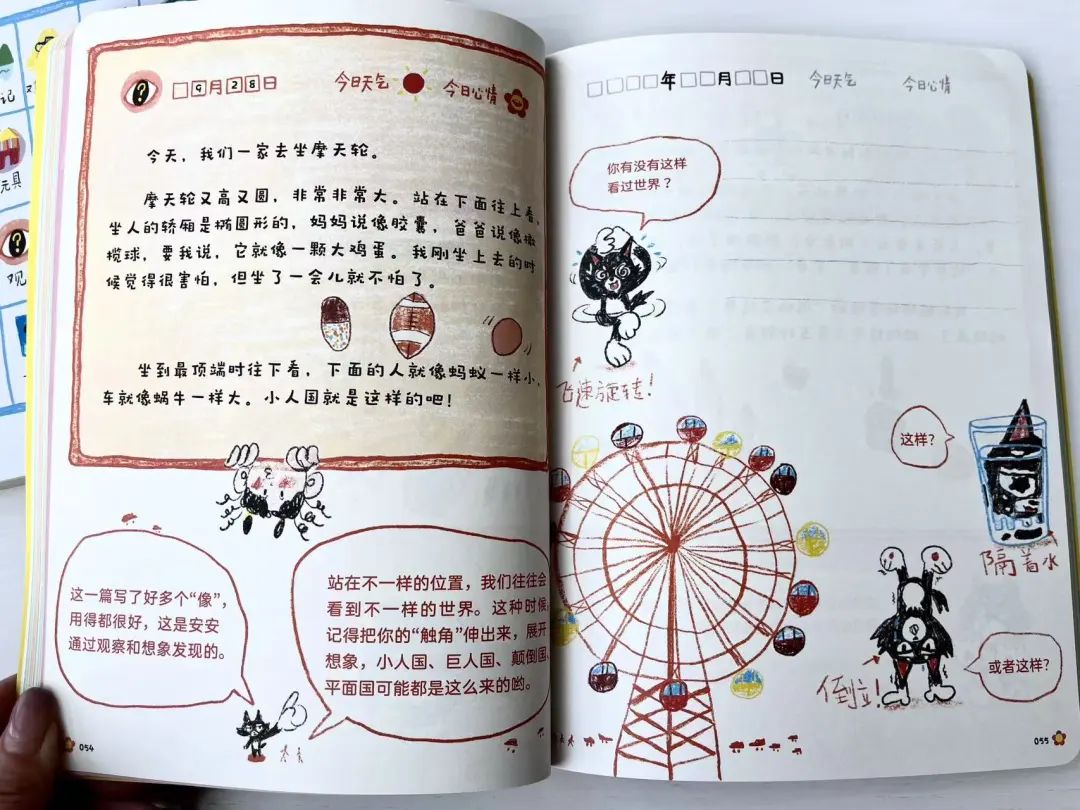 记
玩具
观
□9月28日 今日天气 今日心情
今天，我们一家去坐摩天轮。
摩天轮又高又圆，非常非常大。站在下面往上看，
坐人的轿厢是椭圆形的，妈妈说像胶囊，爸爸说像橄
榄球，要我说，它就像一颗大鸡蛋。我刚坐上去的时
候觉得很害怕，但坐了一会儿就不怕了。
坐到最顶端时往下看，下面的人就像蚂蚁一样小，
车就像蜗牛一样大。小人国就是这样的吧！
这一篇写了好多个“像”，
用得都很好，这是安安
通过观察和想象发现的。
站在不一样的位置，我们往往会
看到不一样的世界。这种时候，
记得把你的“触角”伸出来，展开
想象，小人国、巨人国、颠倒国、
平面国可能都是这么来的哟。
054
□□□□年□□月□□日 今日天气 今日心情
你有没有这样
看过世界？
飞速旋转！
这样？
隔着水
或者这样？
倒立！
055